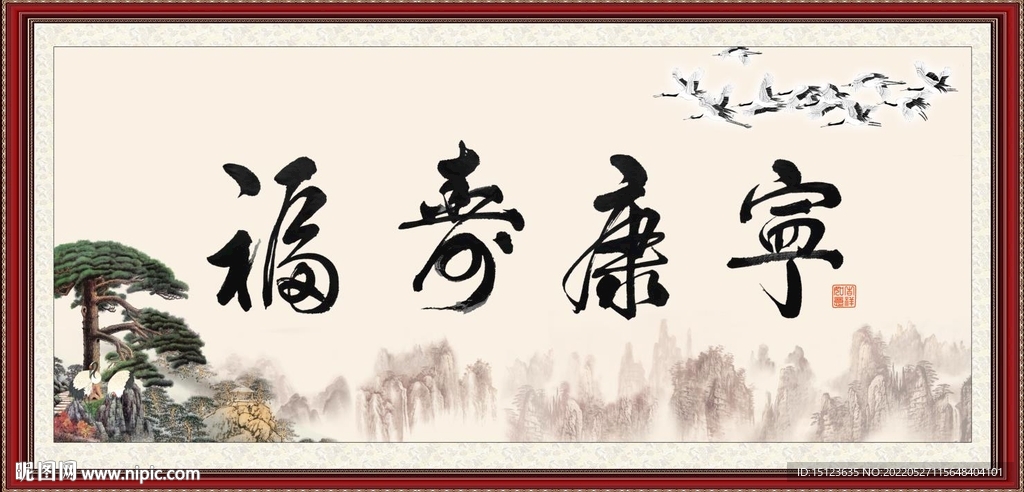 福寿康宁
吉祥如意
昵图网 www.nipic.com
ID:15123635 NO:20220527115648404101